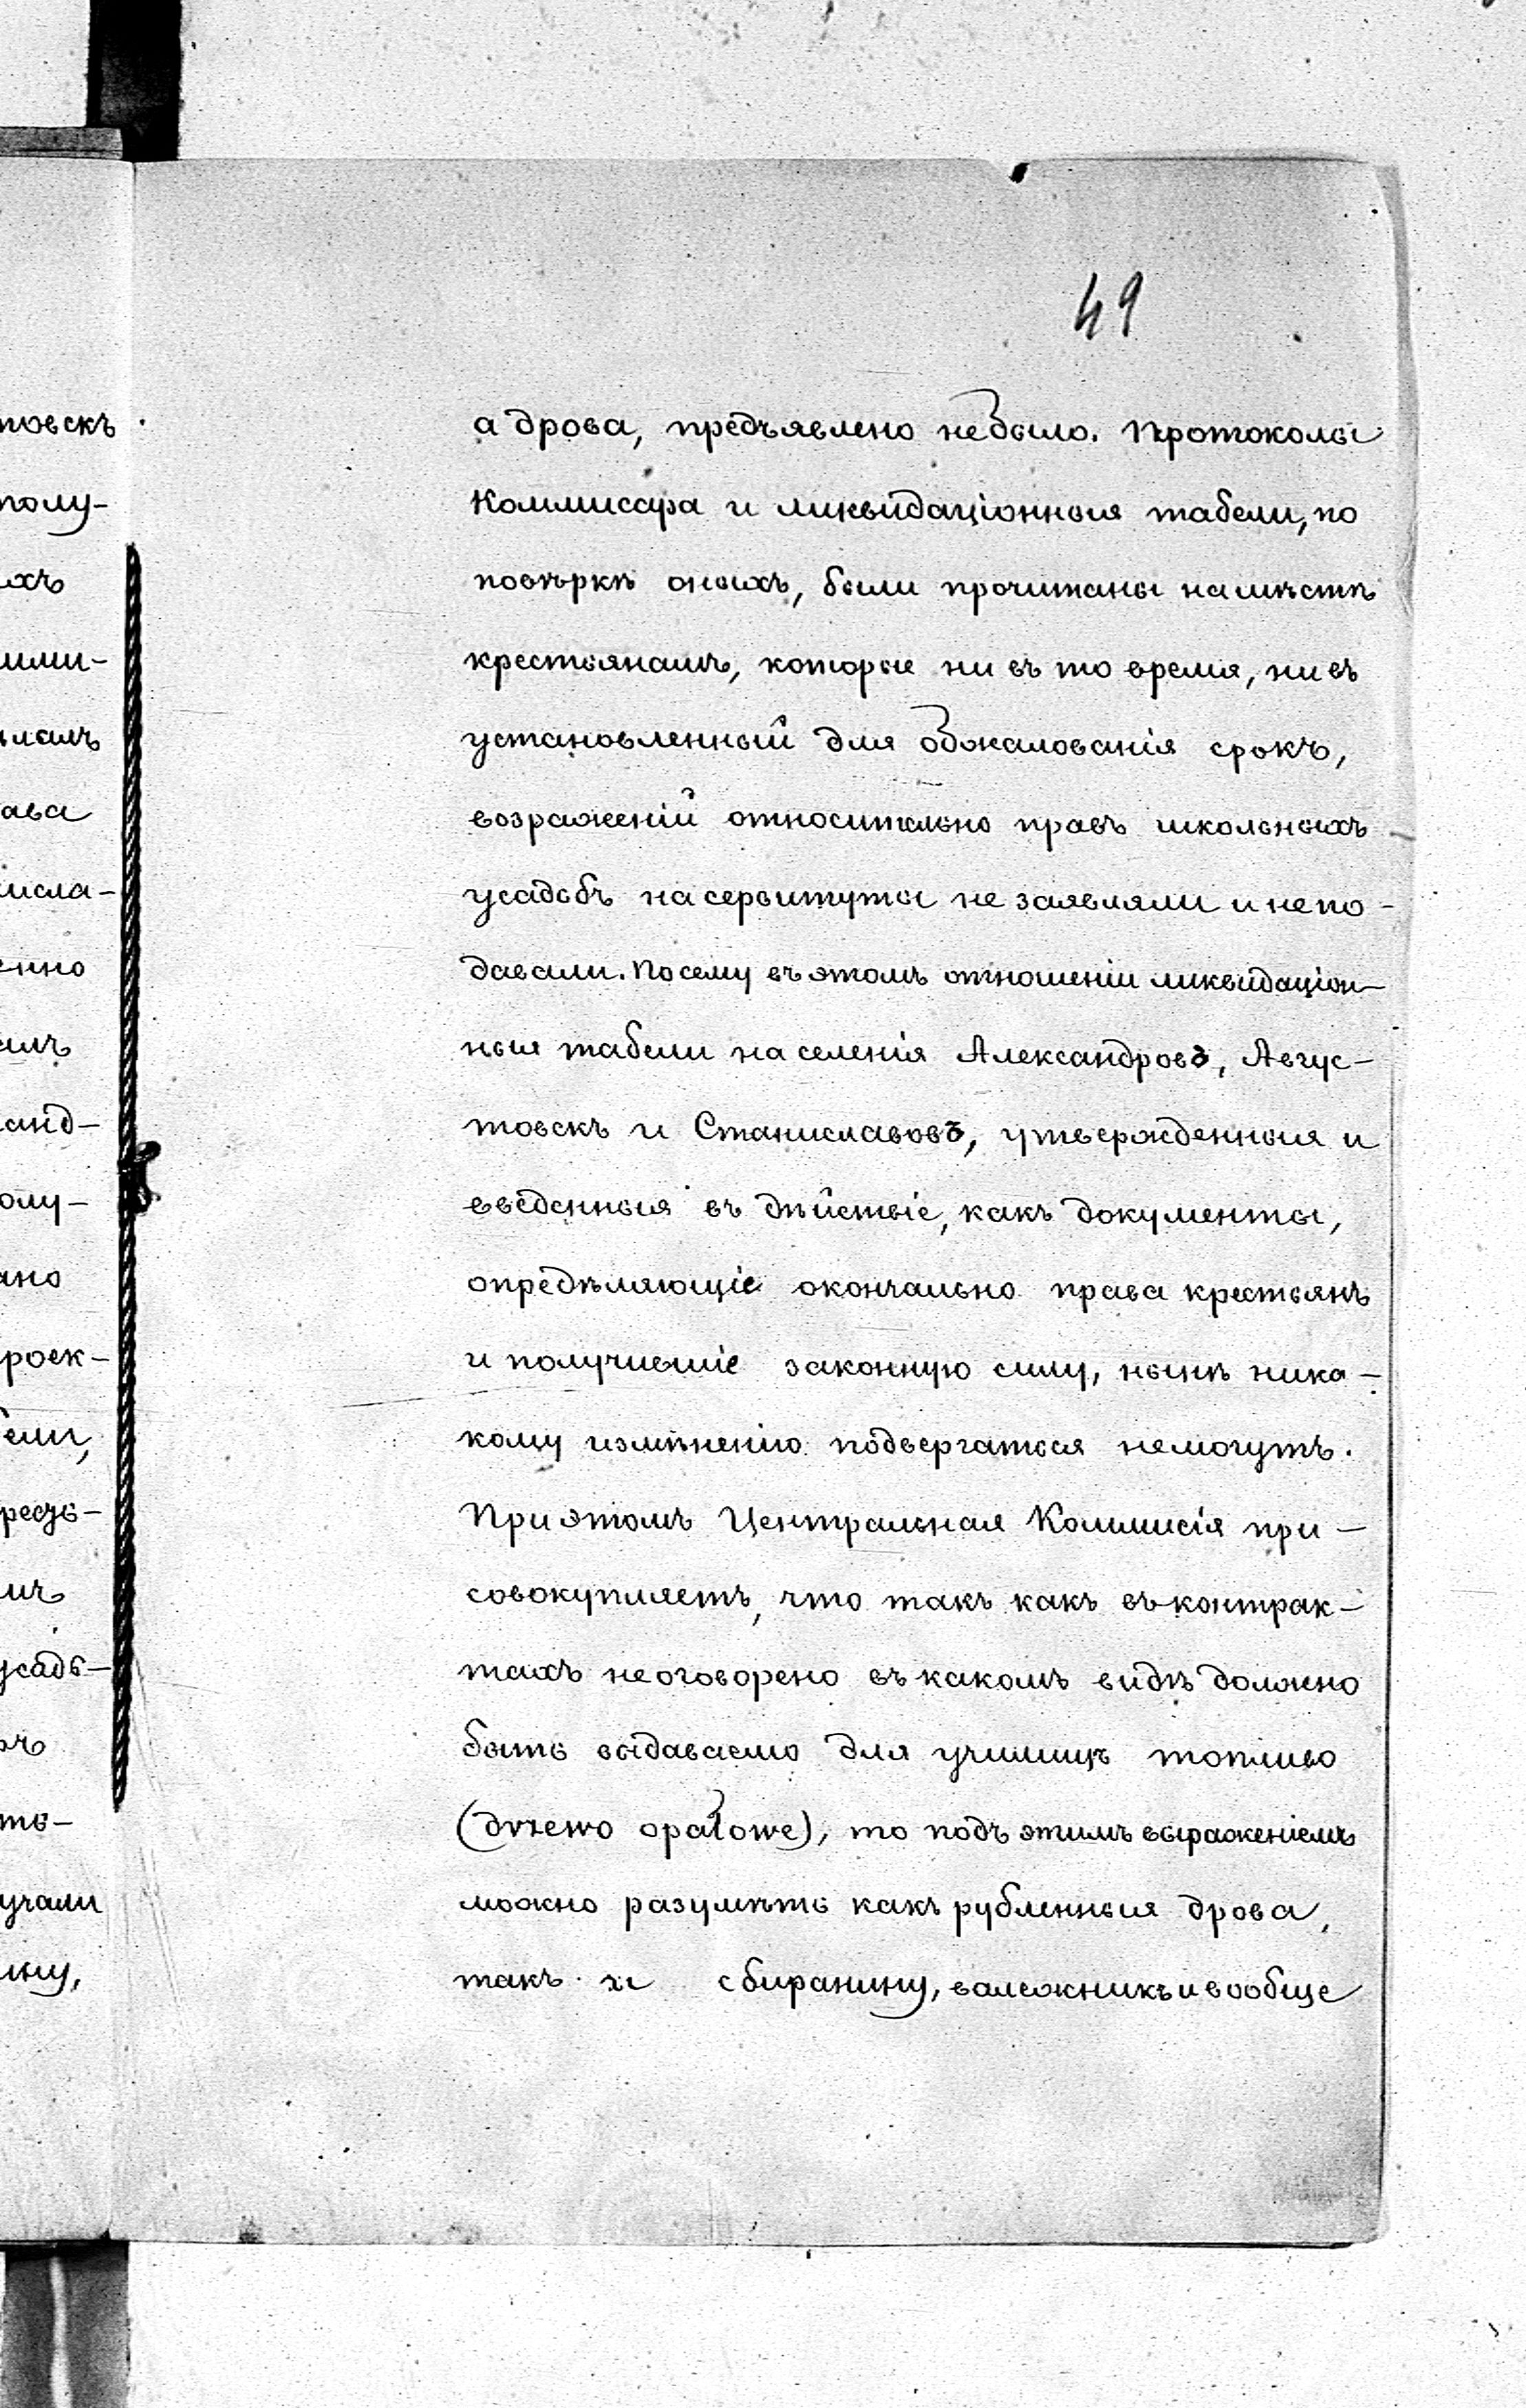 49
а дрова, предъявлено небыло. Протоколы
Коммисара и ликвидаціонныя табели, по
повѣркѣ оныхъ, были прочитаны на мѣстѣ
крестьянамъ, которые ни въ то время, ни въ
установленный для обжалованія срокъ,
возраженій относительно правъ школьныхъ
усадьбъ на сервитуты не заявляли и не по-
давали. Посему въ этомъ отношеніи ликвидаціон-
ныя табели на селенія Александровъ, Авгус-
товскъ и Станиславовъ, утвержденныя и
введенныя въ дѣйствіе, какъ документы,
опредѣляющіе окончально права крестьянъ
и получившіе законную силу, нынѣ ника-
кому измѣненію подвергаться немогутъ.
При этомъ Центральная Коммисія при-
совокупляетъ, что такъ какъ въ контрак-
тахъ не оговорено въ какомъ видѣ должно
быть выдаваемо для училищъ топливо
(drzewo opałowe), то подъ этимъ выраженіемъ
можно разумѣть какъ рубленныя дрова,
такъ и сбиранину, валежникъ и вообще